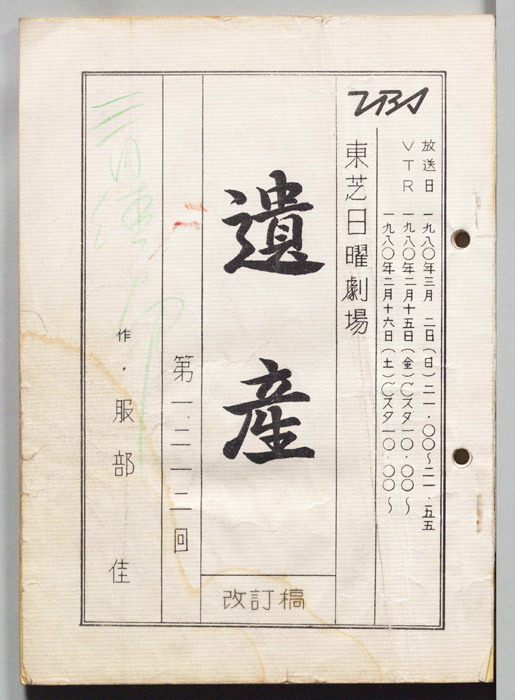 TBS
放送日 一九八〇年三月 二日(日)二一・〇〇〜二一・五五
VTR 一九八〇年二月十五日(金)Cスタ一〇・〇〇〜
一九八〇年二月十六日(土)Cスタ一〇・〇〇〜
東芝日曜劇場
遺産
改訂稿
第一、二一二回
作・服部 佳